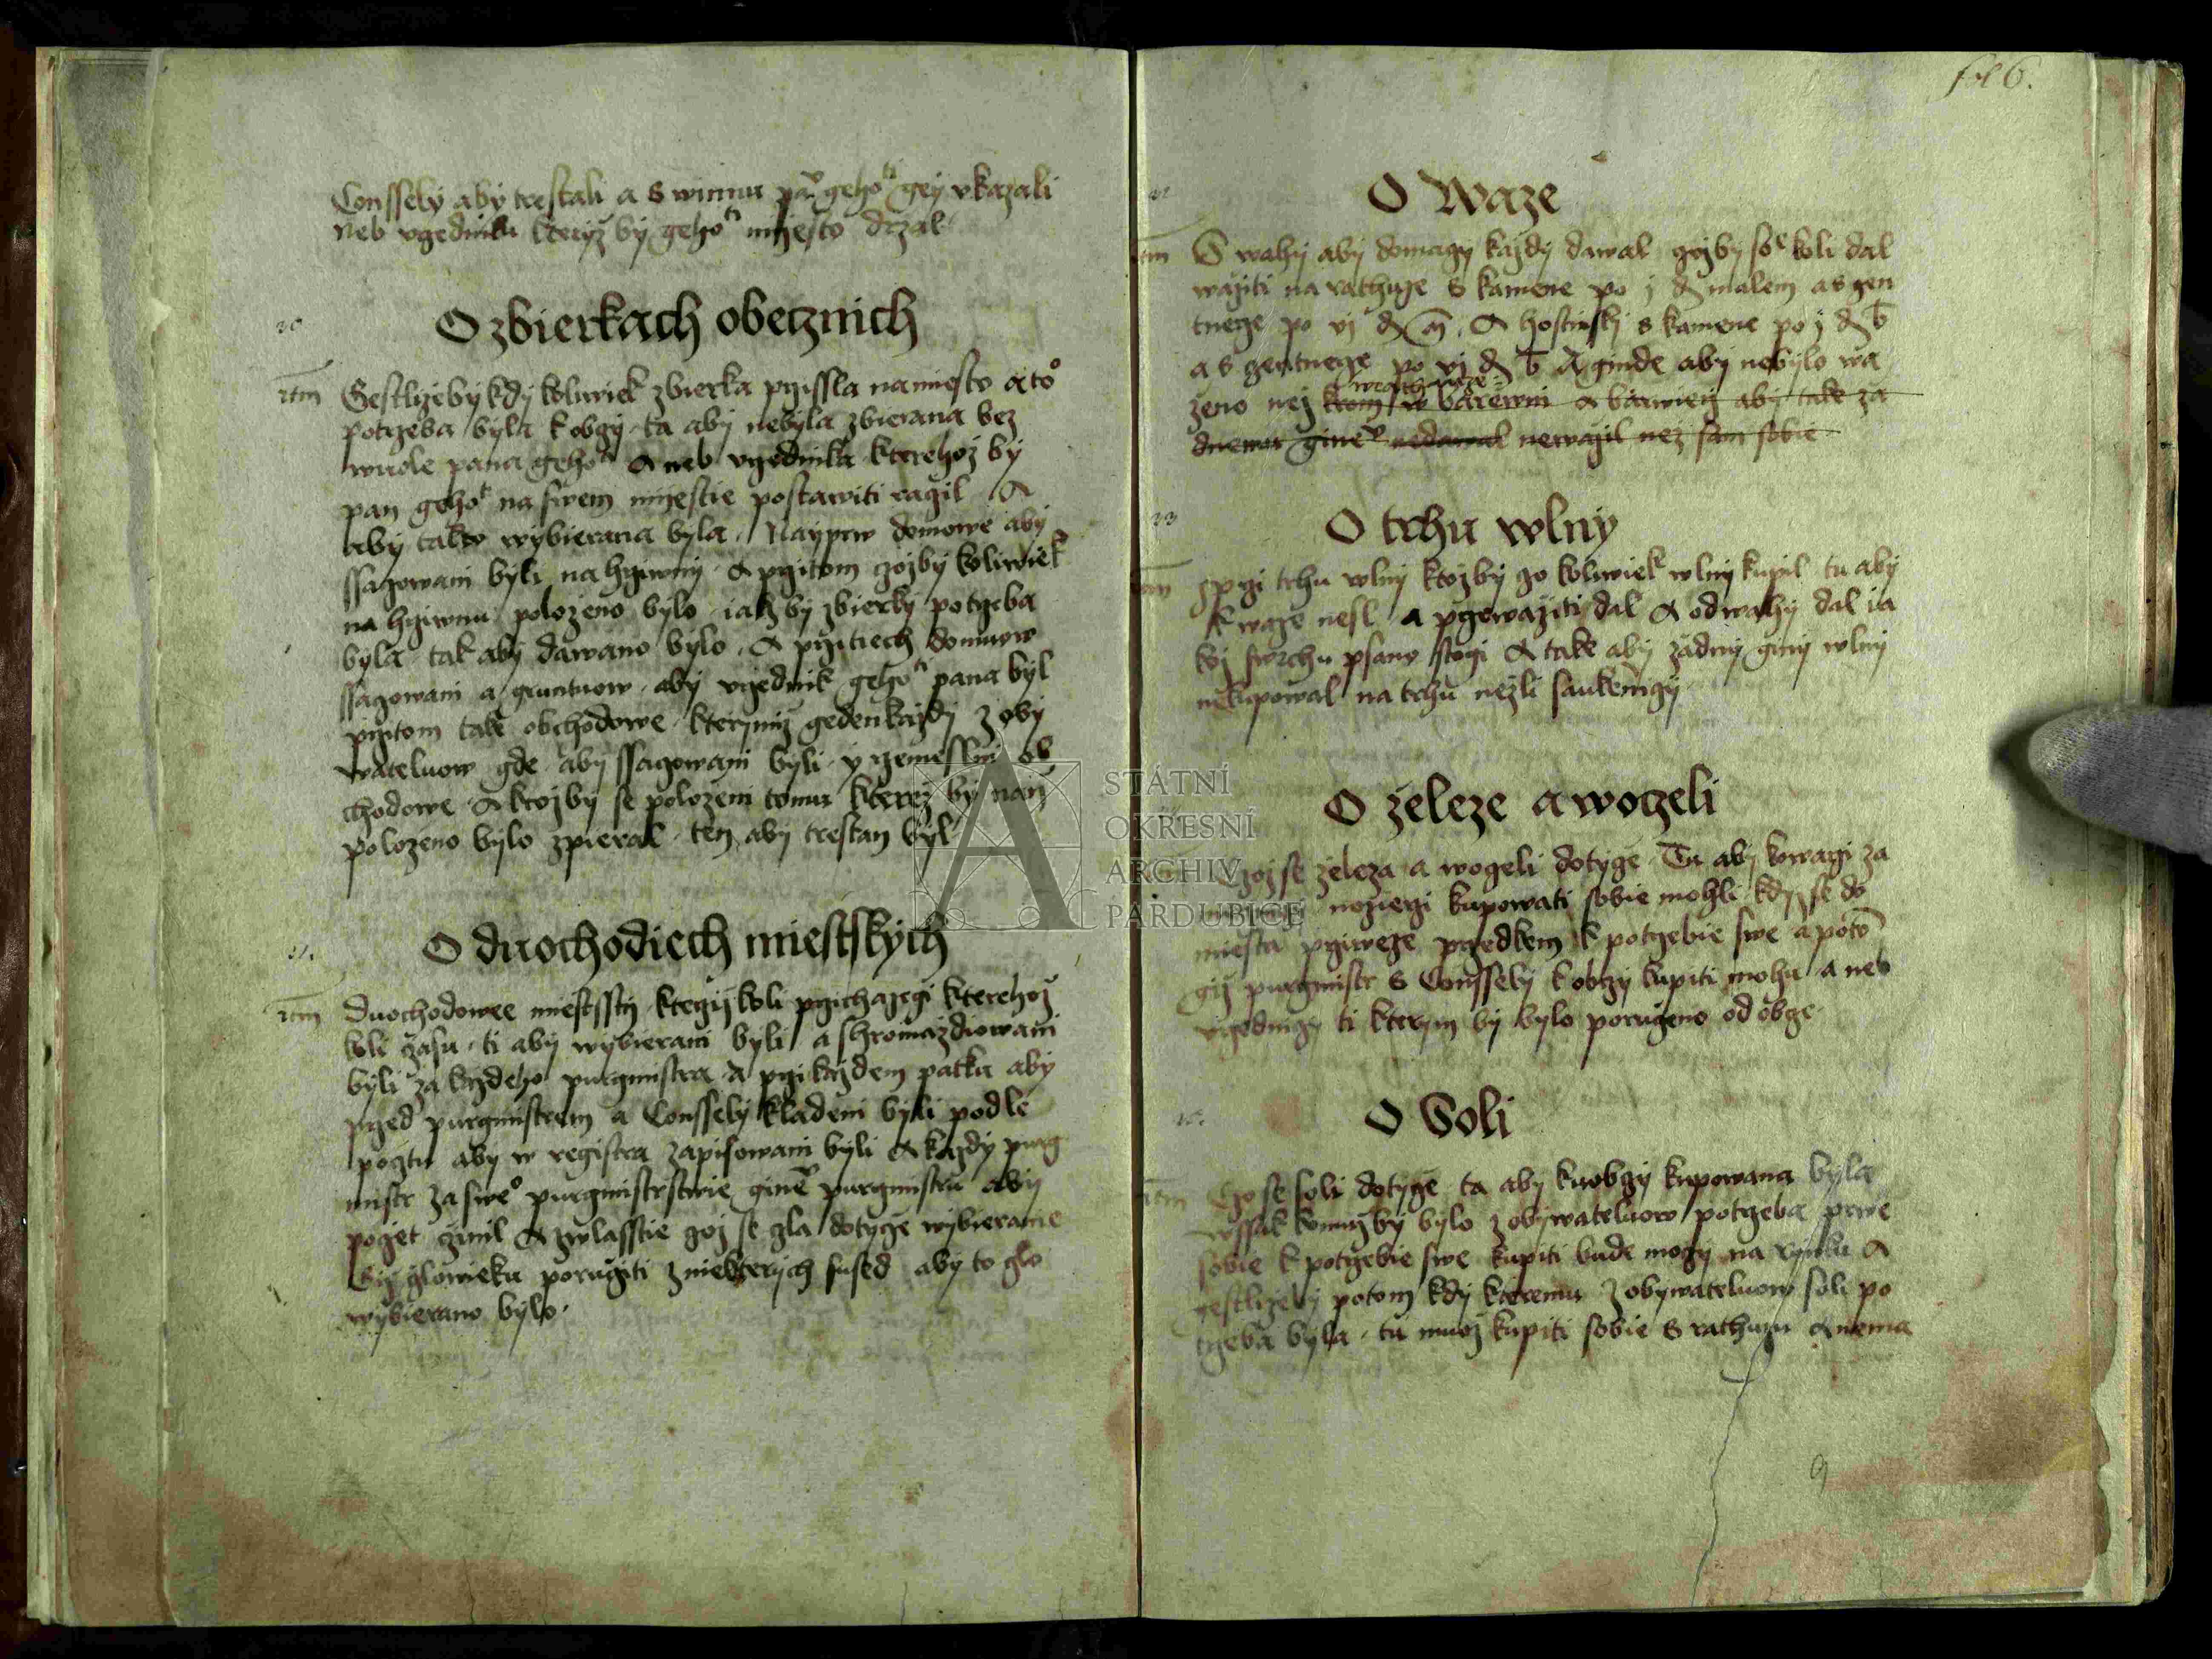 Conssely aby trestali a s winnu pa᷑ gehoti gey vkazali
Neb vrzednika kteryz by gehoti mijesto drzal
30
O zbierkach obecznich
Itm Gestlizeby kdy koliwiek zbierka przissla na miesto a to
potrzeba byla k obczy ta aby nebyla zbierana bez
wuole pana gehoti A neb vrzednika kterehoz by
pan gehot na swem mijestie postawiti raczil A
aby takto wybierana byla. Nayprw domowe aby
ssaczowani byli na hrziwny A przitom czozby koliwiek
na hrziwnu polozeno bylo iakzby zbierky potrzeba
byla tak aby dawano bylo. A przitiech domuow
ssaczowani a gruntuow aby vrzednik gehoti pana byl
przitom take obchodowe kterymiz geden kazdy z oby
wateluow gde aby ssaczowani byli y rzemeslni ob
chodowe A ktozby se polozeni tomu kterez by nan
polozeno bylo zpieral ten aby trestan byl
31.
O duochodiech miestskych
Itm Duochodowee miestssti kterzijkoli przichazegi kterehoz
koli czasu ti aby wybierani byli a shromazdiowani
byli za kazdeho purgmistra A przi kazdem patku aby
przed purgmistrem a Conssely kladeni byli podle
pocztu aby w registra zapisowani byli A kazdy purg
mistr za sweo purgmistrstwie ginemu purgmistru aby
poczet czinil A zwlasstie czoz se cla dotycze wybieranie
czlowieku poruciti z niekterych sused aby to clo
wybierano bylo.
fol 6.
32
O Waze
Itm S wahy aby domaczy kazdy dawal czozby so koli dal
waziti na rathuze s kamene po j d malem a s cen
tnerze po vj d m. A hostinsky s kamene po j d b
a s centnerze po vj d b A ginde aby nebylo wa
w rathuze
zeno nez krom w barewni A barwirz aby take za
dnemu ginemu nedawal newazil nez sam sobie
33
O trhu wlny
Itm Przi trhu wlny ktozby czo koliwiek wlny kupil tu aby
k waze nesl a przewaziti dal A od wahy dal ia
koz swrchu psano stogi A take aby zadny giny wlny
nekupowal na trhu nezli saukeniczy
O zeleze a wogeli
Czoz se zeleza a wogeli dotycze Tu aby kowarzi za
mecznicy nozierzi kupowati sobie mohli kdyz se do
miesta przweze przedkem k potrzebie swe a potom
gij purgmistr s Conssely k obczy kupiti mohu a neb
vrzedniczy ti kterym by bylo poruczeno od obcze
O Soli
Itm Czo se soli dotycze ta aby kuobczy kupowana byla
wssak komuzby bylo z obywateluow potrzeba prwe
sobie k potrzebie swe kupiti bude moczy na rynku A
gestlizeby potom kdy kteremu z obywateluow soli po
trzeba byla tu muoz kupiti sobie s rathuzu A nema
9
STÁTNÍ
OKRESNÍ
ARCHIV
PARDUBICE